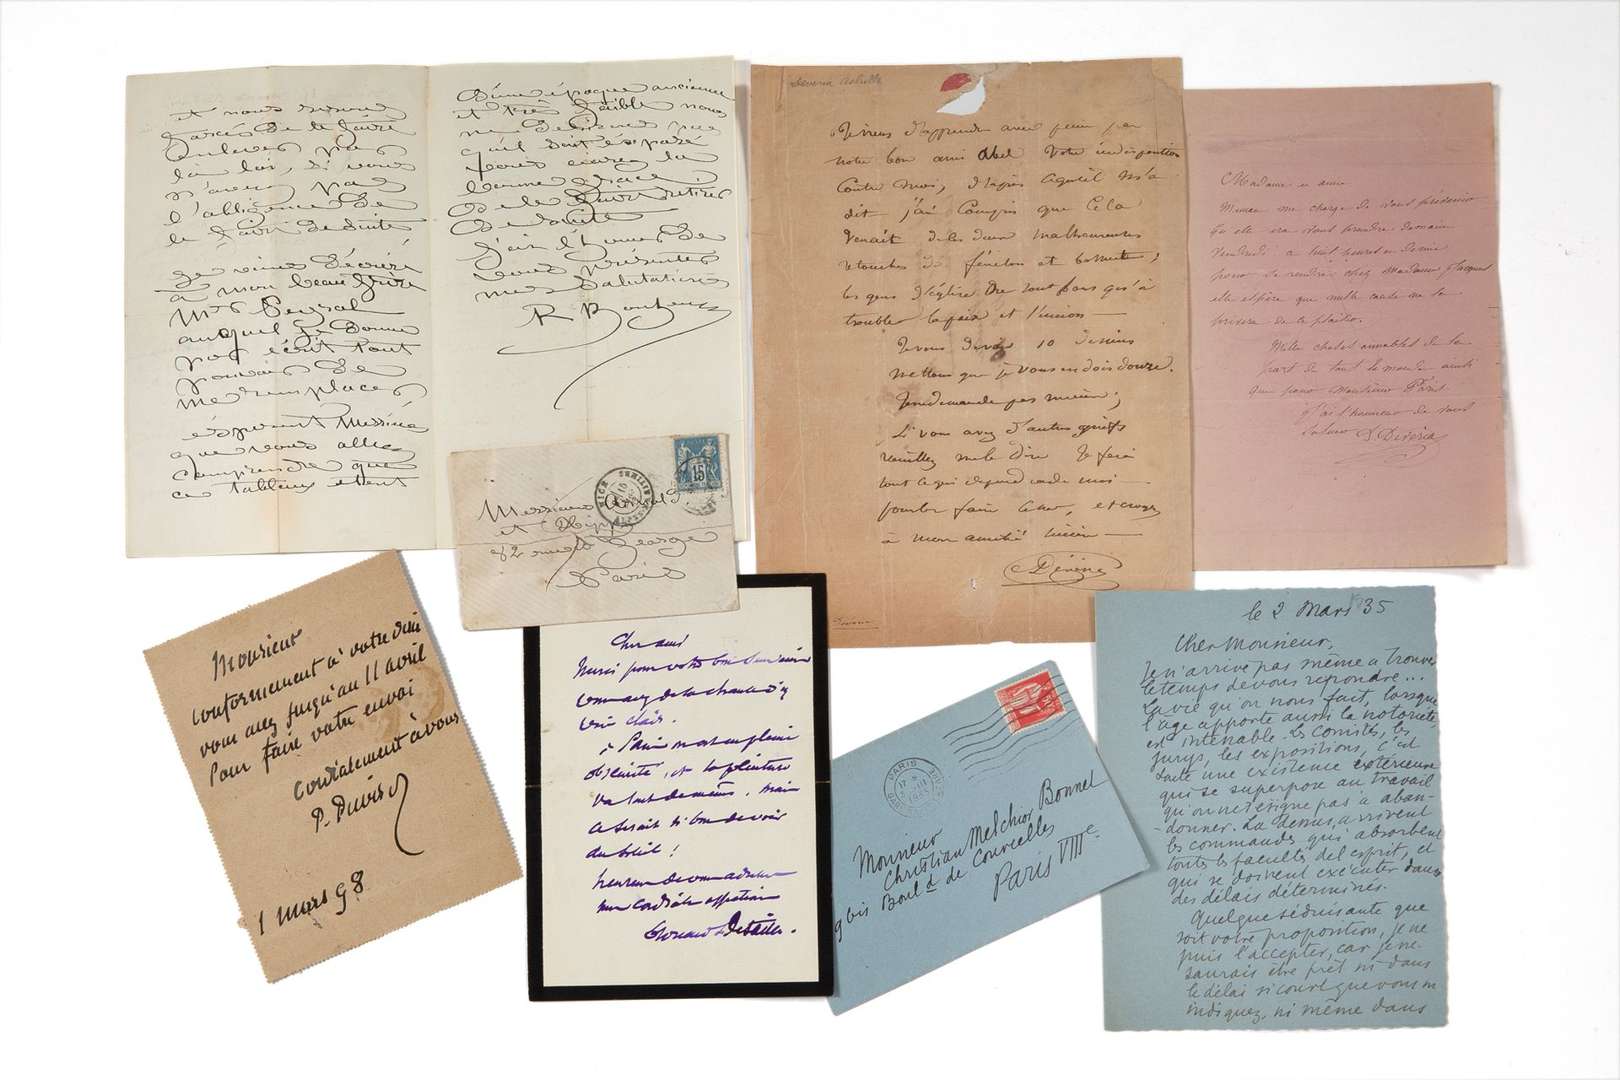 et nous serons
forcés de le faire
enlever par
la loi, si vous
n'avez pas
l'obligeance de
le faire de suite
Je viens d'écrire
à mon beau frère
Mr Peyrol
auquel je donne
par écrit tout
pouvoir de
me remplacer
espérant Messieurs
que vous allez
comprendre que
ce tableau étant
d'une époque ancienne
et très faible nous
ne désirons pas
qu'il soit exposé
vous aurez la
bonne grâce
de le faire retirer
de suite
J'ai l'honneur de
vous présenter
mes salutations
R Bonheur
Messieurs
et
62 rue St George
Paris
NICE
15
Deveria Achille
Je viens d'apprendre avec peine par
notre bon ami Abel votre indisposition
contre moi, d'après ce qu'il m'a
dit j'ai compris que cela
venait de les deux malheureuses
retouches de fénélon et bossuet;
les gens d'église
troubler la paix et l'union
Je vous devais 10 dessins
mettons que je vous en dois douze.
Je ne demande pas mieux;
Si vous avez d'autres griefs
veuillez me le dire Je ferai
tout ce qui dépend de moi
pour les faire cesser, et croyez
à mon amitié sincère
Déveria
Madame et amie
Maman me charge de vous prévenir
qu'elle ira vous prendre demain
Vendredi à huit heures et demie
pour se rendre chez Madame
elle espère que nulle cause ne la
privera de ce plaisir.
Mille choses aimables de la
part de tout le monde ainsi
que pour Monsieur
J'ai l'honneur de vous
saluer Deveria
Monsieur
conformément à votre désir
vous avez jusqu'au 11 avril
Pour faire votre envoi
cordialement à vous
P. Puvis
1 mars 98
Cher ami
Merci pour votre bon souvenir
vous avez de la chance d'y
voir clair.
à Paris on est en pleine
obscurité, et la peinture
va tant de même, mais
ce serait si bon de voir
du soleil!
heureux de vous adresser
mon cordiale affection
Edouard Detaille.
PARIS
Monsieur
Christian Melchior Bonnet
9 bis Boul.d de Courcelles
Paris VIIIe
le 2 Mars 35
Cher Monsieur,
Je n'arrive pas même à trouver
le temps de vous répondre...
La vie qu'on nous fait, lorsque
l'âge apporte aussi la notoriété,
est intenable. les Comités, les
jurys, les expositions, c'est
toute une existence extérieure
qui se superpose au travail
qu'on ne se résigne pas à aban-
-donner. La dessus, arrivent
les commandes qui absorbent
toutes les facultés de l'esprit, et
qui se doivent exécuter dans
des délais déterminés.
Quelque séduisante que
soit votre proposition, je ne
puis l'accepter, car je ne
saurais être prêt ni dans
le délai si court que vous m'
indiquez, ni même dans